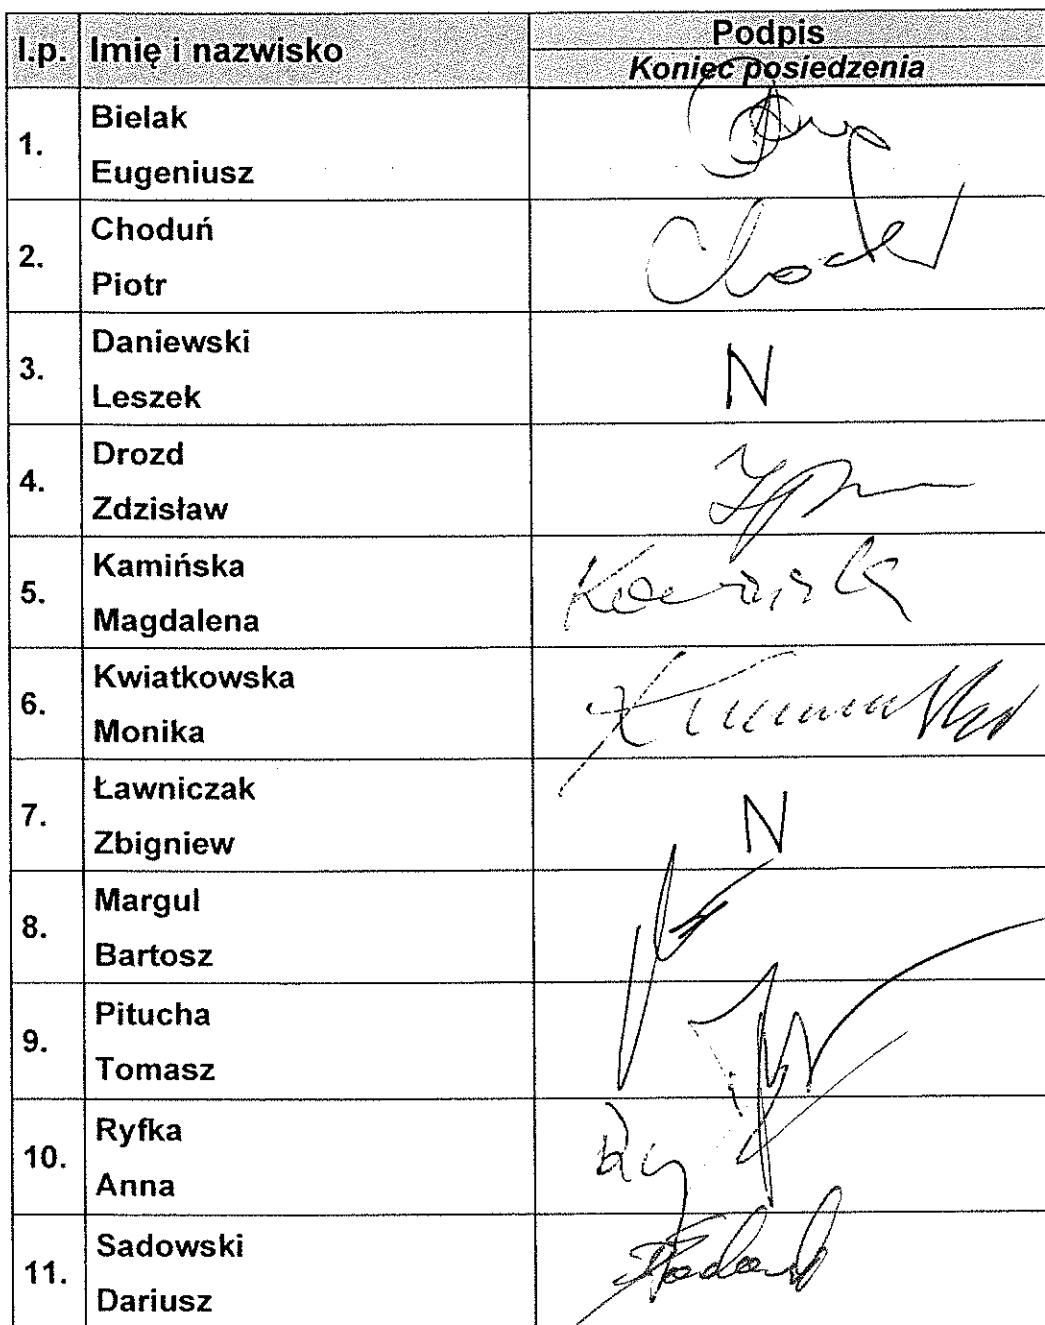 l.p. Imię i nazwisko Podpis
Koniec posiedzenia
1. Bielak
Eugeniusz
2. Choduń
Piotr
3. Daniewski
Leszek
N
4. Drozd
Zdzisław
5. Kamińska
Magdalena
6. Kwiatkowska
Monika
7. Ławniczak
Zbigniew
N
8. Margul
Bartosz
9. Pitucha
Tomasz
10. Ryfka
Anna
11. Sadowski
Dariusz